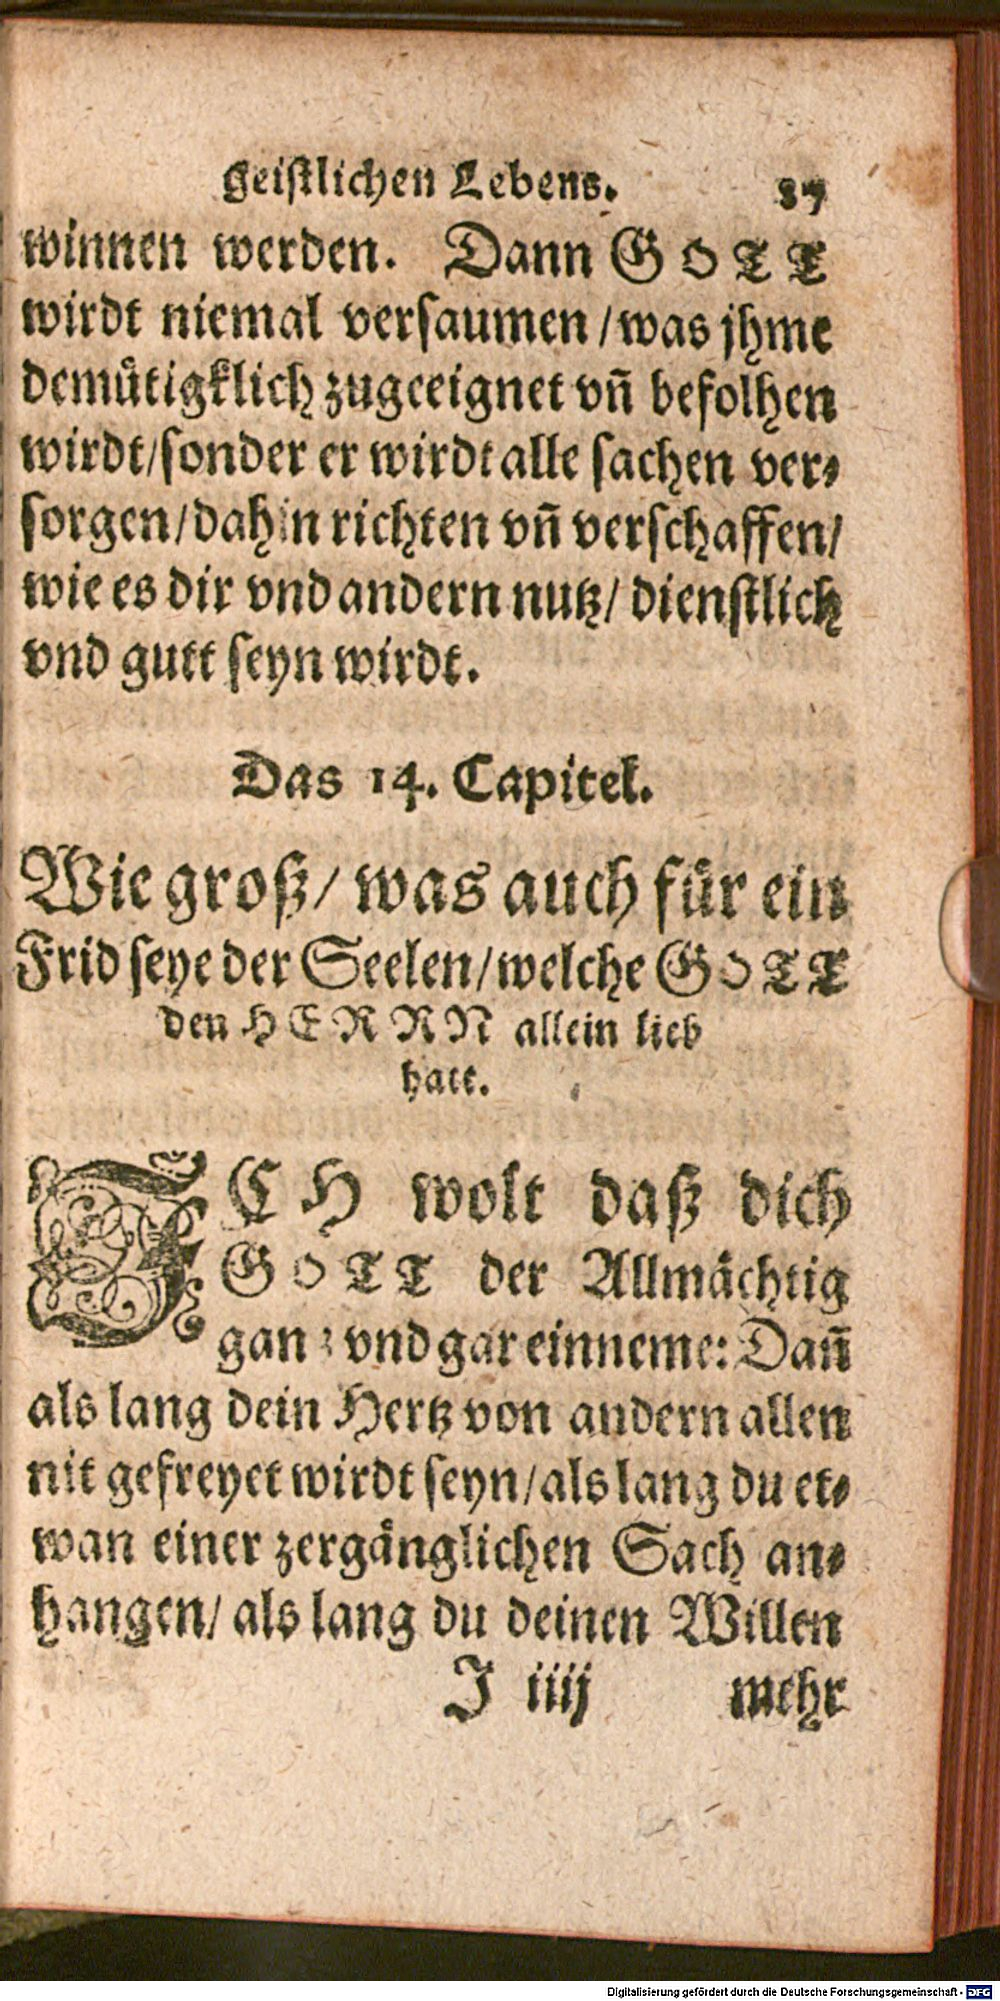 geistlichen Lebens. 87
winnen werden. Dann GOTT
wirdt niemal versaumen / was jhme
demütigklich zugeeignet vñ befolhen
wirdt / sonder er wirdt alle sachen ver-
sorgen / dahin richten vñ verschaffen /
wie es dir vnd andern nutz / dienstlich
vnd gutt seyn wirdt.
Das 14. Capitel.
Wie groß / was auch für ein
Frid seye der Seelen / welche GOTT
den HERRN allein lieb
hatt.
ICH wolt daß dich
GOTT der Allmächtig
ganz vnd gar einneme: Dañ
als lang dein Hertz von andern allen
nit gefreyet wirdt seyn / als lang du et-
wan einer zergänglichen Sach an-
hangen / als lang du deinen Willen
J iiij mehr
Digitalisierung gefördert durch die Deutsche Forschungsgemeinschaft - DFG